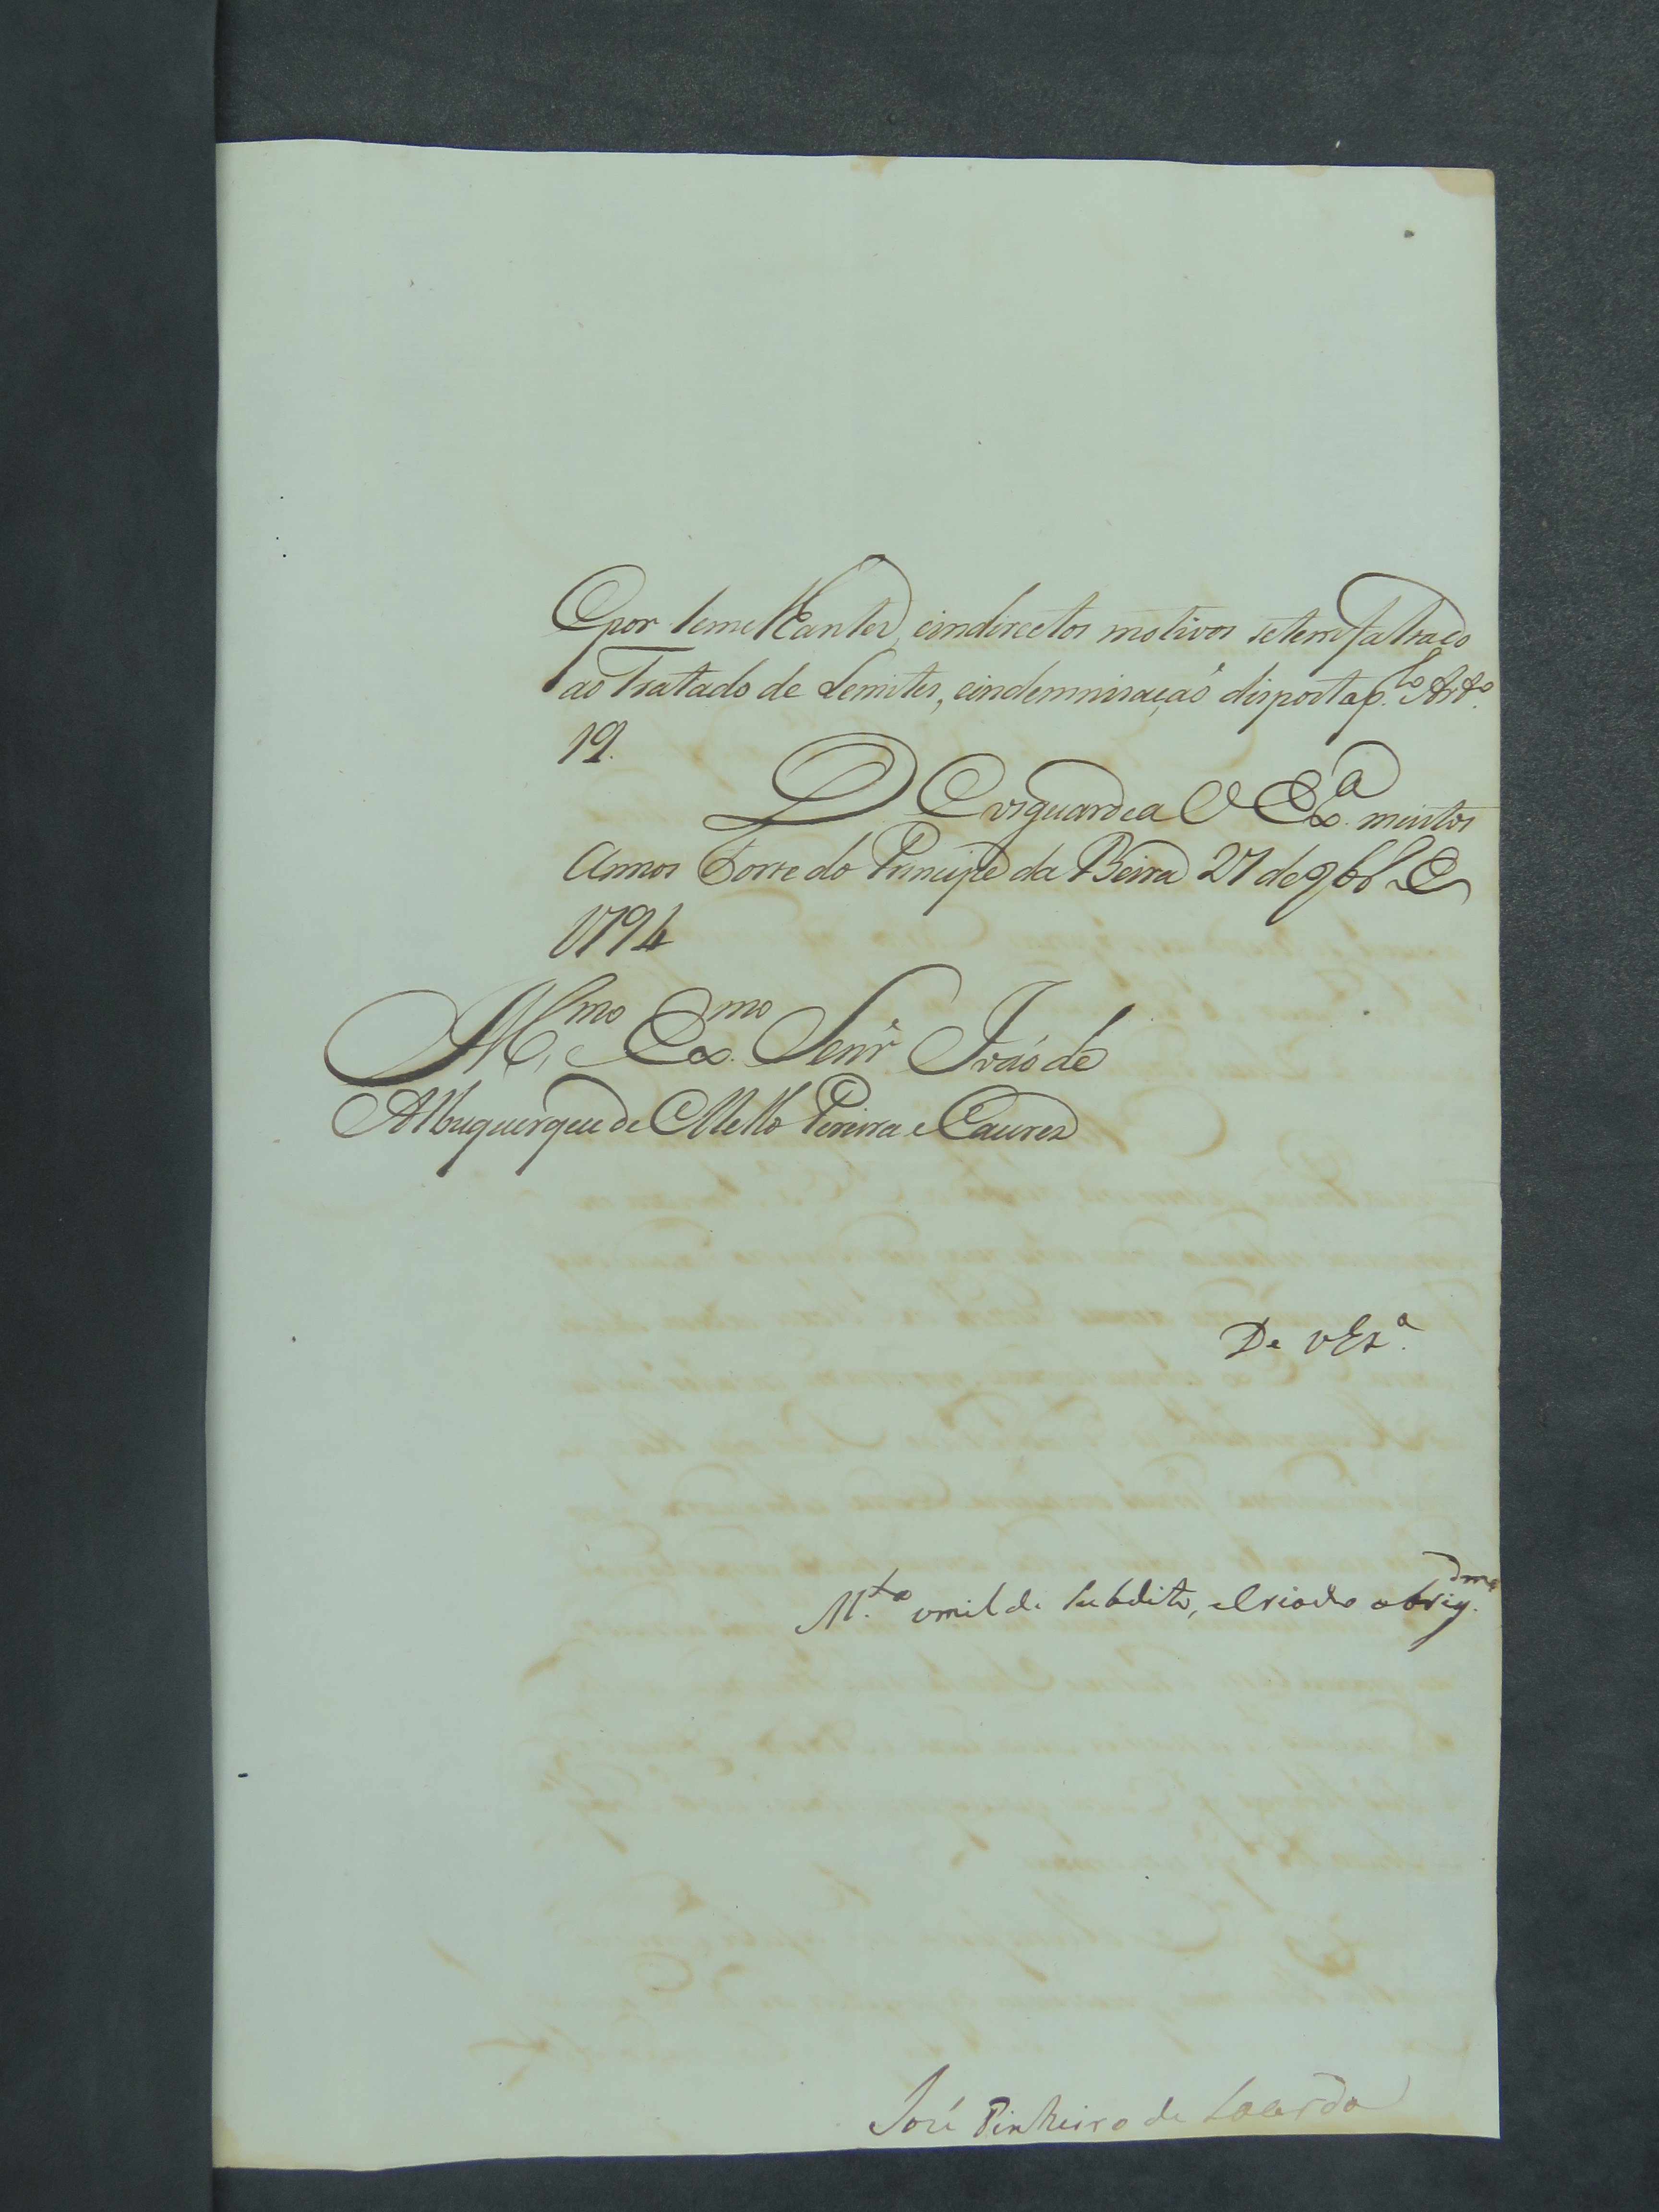 E por semelhantes, e indirectos motivos se tem faltado
ao Tratado de Lemites, e indemnisaçaõ disposta p.lo Art.o
19.
Deos guarde a V Ex.a muitos
annos Forte do Principe da Beira 27 de 9br.o de
1794
Ill.mo e Ex.mo Senr Joaõ de
Albuquerque de Mello Pereira e Caceres
De V Ex.a
M.to umilde subdito, e criado obrig.dmo
José Pinheiro de Lacerda